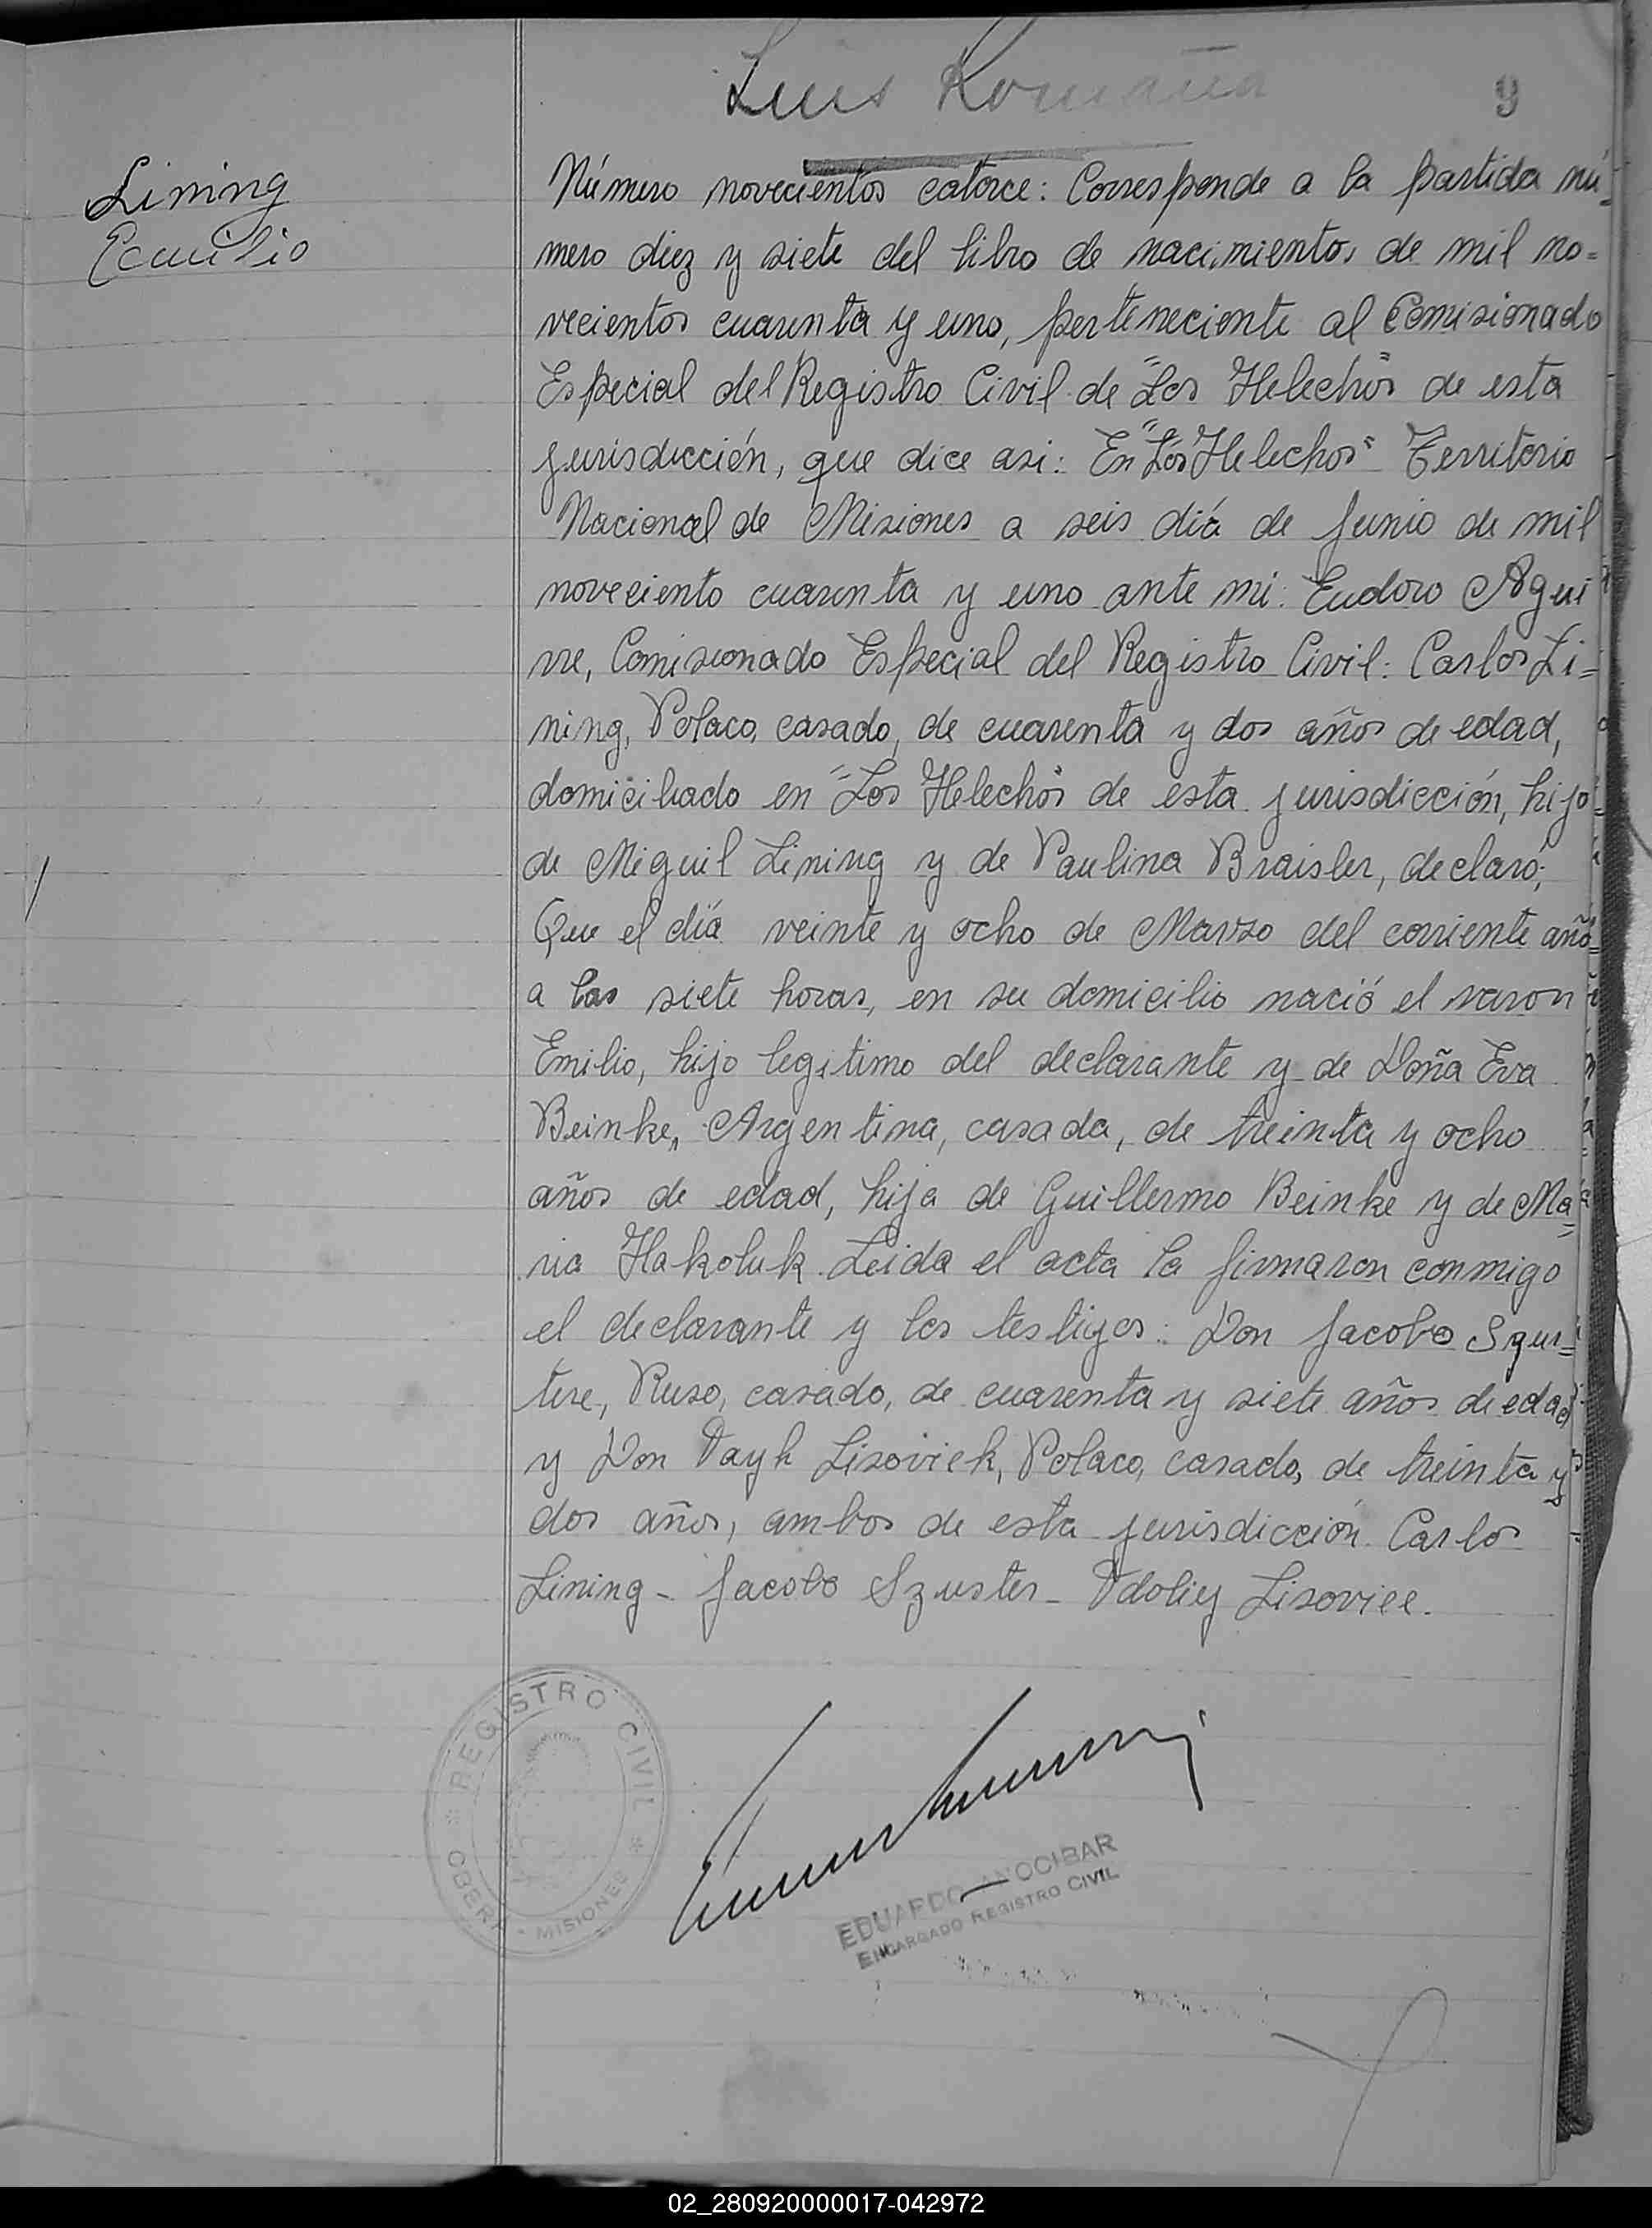 Luis Romaña
9
Lining
Emilio
Número novecientos catorce: Corresponde a la partida nú=
mero diez y siete del libro de nacimientos de mil no=
vecientos cuarenta y uno, perteneciente al Comisionado
Especial del Registro Civil de "Los Helechos" de esta
jurisdicción, que dice asi: En "Los Helechos" Territorio
Nacional de Misiones a seis día de Junio de mil
noveciento cuarenta y uno ante mi: Eudoro Agui
rre, Comisionado Especial del Registro Civil: Carlos Li=
ning, Polaco, casado, de cuarenta y dos años de edad,
domiciliado en "Los Helechos" de esta jurisdicción, hijo
de Miguil Lining y de Paulina Braisler, declaró;
Que el día veinte y ocho de Marzo del corriente año
a las siete horas, en su domicilio nació el varon
Emilio, hijo legitimo del declarante y de Doña Eva
Beinke, Argentina, casada, de treinta y ocho
años de edad, hija de Guillermo Beinke y de Ma=
ria Hakoluk. Leida el acta la firmaron conmigo
el declarante y los testigos: Don Jacobo Squs=
tere, Ruso, casado, de cuarenta y siete años de edad
y Don Tayk Lisoviek, Polaco, casado, de treinta y
dos años, ambos de esta jurisdicción. Carlos
Lining - Jacobo Szuster - Lisoviee.
REGISTRO CIVIL
OBERA - MISIONES
EDUARDO ANOCIBAR
ENCARGADO REGISTRO CIVIL
02_280920000017-042972